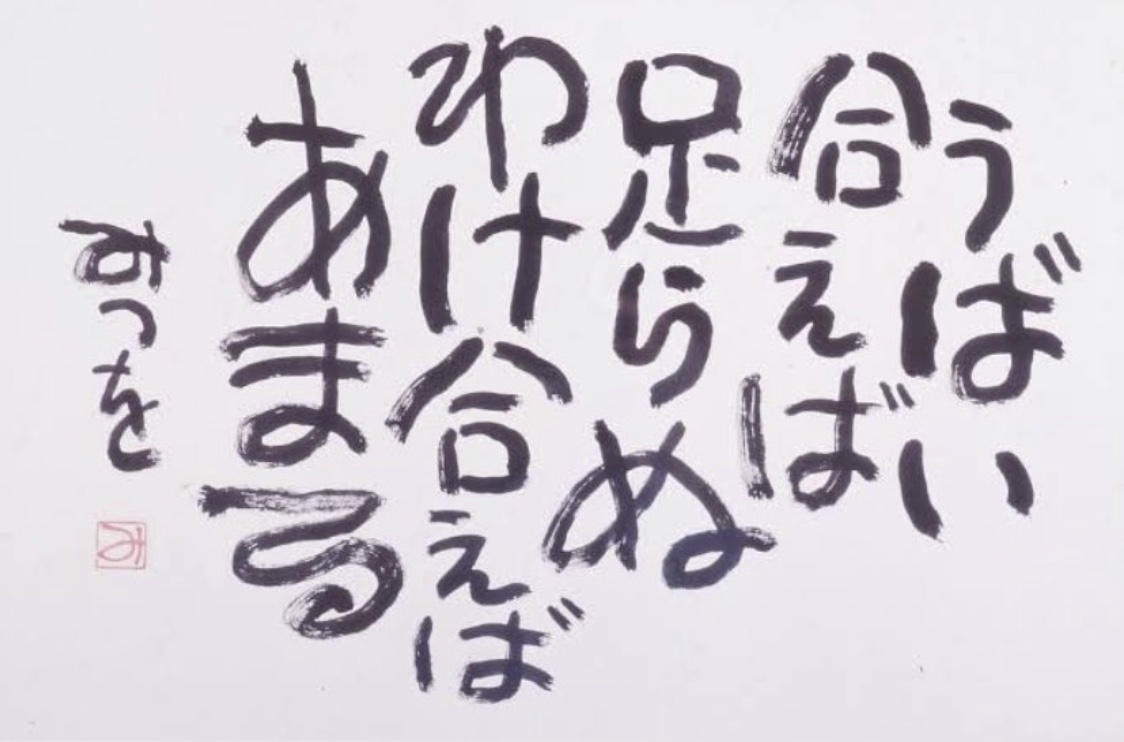 うばい
合えば
足らぬ
わけ合えば
あまる
みつを
み